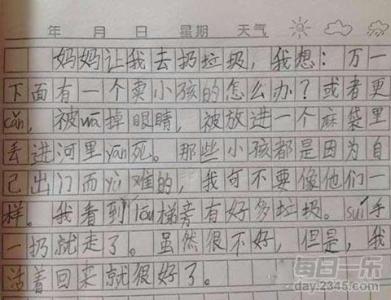 年 月 日 星期 天气
妈妈让我去扔垃圾，我想：万一
下面有一个卖小孩的怎么办？或者更
cǎn，被wā掉眼睛，被放进一个麻袋里
丢进河里yān死。那些小孩都是因为自
己出门而yù难的，我可不要像他们一
样。我看到lóu梯旁有好多垃圾。suí手
一扔就走了。虽然很不好，但是，我
活着回来就很好了。
每日一乐
www.2345.com